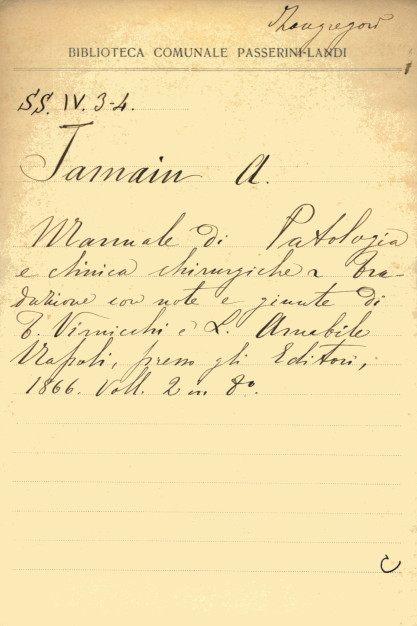 Mangregorio
BIBLIOTECA COMUNALE PASSERINI-LANDI
1
SS. IV. 3-4.
Jamain A.
Manuale di Patologia
e clinica chirurgiche Tra-
duzione con note e giunte di
T. Virnicchi e L. Amabile
Napoli, presso gli Editori,
1866. Voll. 2 in 8°.
C